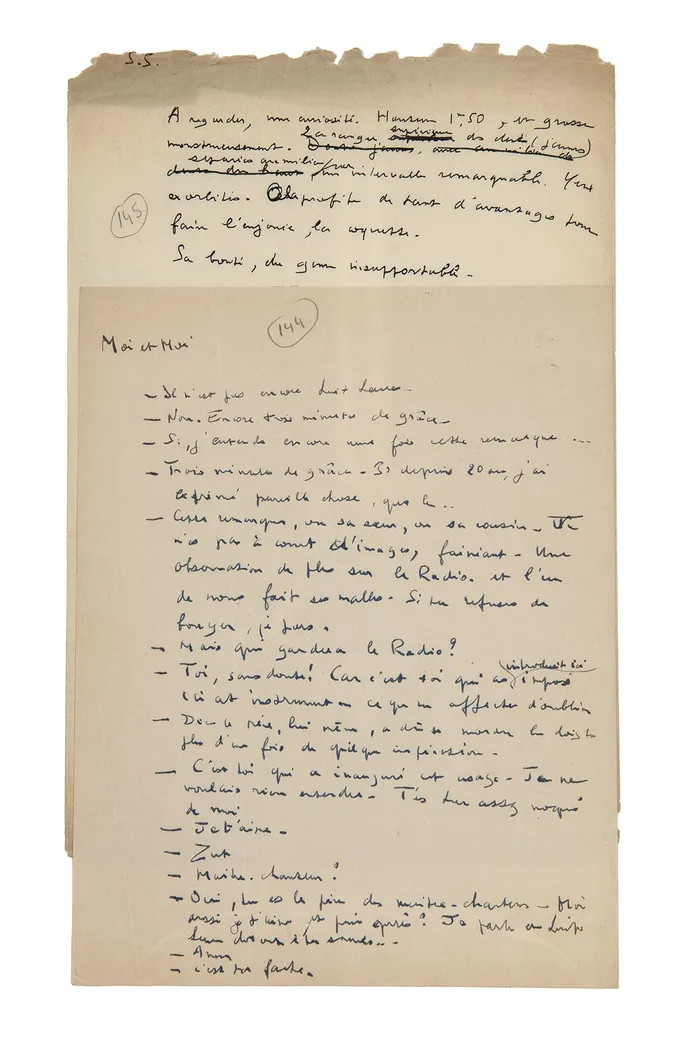 S.S.
A regarder, une curiosité. Hauteur 1m,50, et grosse
monstrueusement. La rangée supérieure des dents (jaunes)
un intervalle remarquable. Yeux
exorbités. Ola profite de tant d'avantages pour
faire l'enjouée, la coquette.
Sa bonté, du genre insupportable.
145
144
Moi et Moi
— Il n'est pas encore huit heures
— Non. Encore trois minutes de grâce
— Si, j'entends encore une fois cette remarque ...
— Trois minutes de grâce - Si depuis 20 ans, j'ai
exprimé pareille chose, que le ..
— Cette remarque, ou sa sœur, ou sa cousine - Tu
n'es pas à court d'images, fainéant - Une
observation de plus sur la Radio. et l'un
de nous fait ses malles - Si tu refuses de
bouger, je pars.
— Mais qui gardera la Radio ?
— Toi, sans doute ! Car c'est toi qui as imposé
introduit ici
ici cet instrument ce que tu affectes d'oublier
— Dieu le père, lui même, a dû se mordre les doigts
plus d'une fois de quelque inspiration -
— C'est toi qui as inauguré cet usage - Je ne
voulais rien entendre - T'es tu assez moqué
de moi
— Je t'aime -
— Zut
— Maître-chanteur !
— Oui, tu es le pire des maîtres-chanteurs - Moi
aussi je t'aime et puis après ? Je parle
— c'est ta faute.